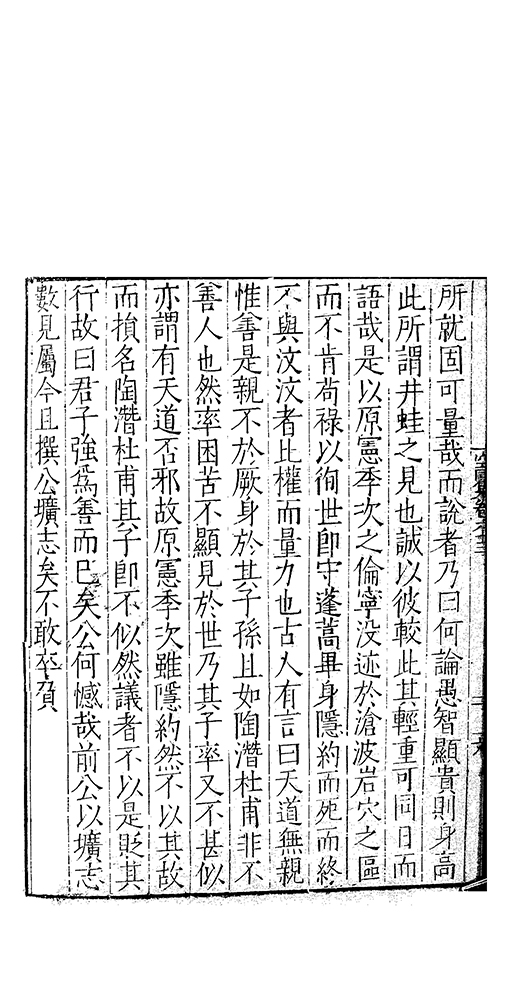 所就固可量哉而說者乃曰何論愚智顯貴則身高
此所謂井蛙之見也誠以彼較此其輕重可同日而
語哉是以原憲季次之倫寧没迹於滄波岩穴之區
而不肯苟祿以徇世卽守蓬蒿畢身隱約而死而終
不與汶汶者比權而量力也古人有言曰天道無親
惟善是親不於厥身於其子孫且如陶潛杜甫非不
善人也然率困苦不顯見於世乃其子率又不甚似
亦謂有天道否邪故原憲季次雖隱約然不以其故
而損名陶潛杜甫其子卽不似然議者不以是貶其
行故曰君子強爲善而已矣公何憾哉前公以壙志
數見屬今且撰公壙志矣不敢卒負